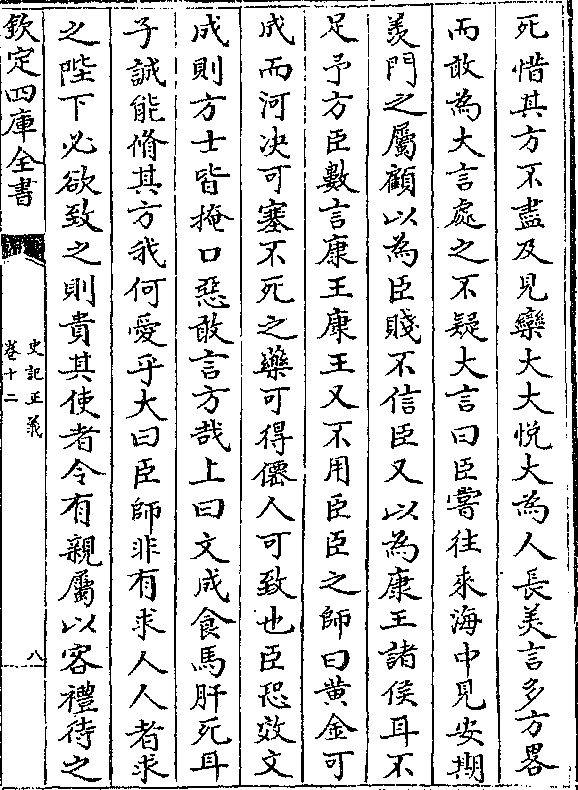 死惜其方不盡及見欒大大悦大為人長美言多方畧
而敢為大言處之不疑大言曰臣嘗往來海中見安期
羡門之屬顧以為臣賤不信臣又以為康王諸侯耳不
足予方臣數言康王康王又不用臣臣之師曰黄金可
成而河决可塞不死之藥可得僊人可致也臣恐效文
成則方士皆掩口惡敢言方哉上曰文成食馬肝死耳
子誠能脩其方我何愛乎大曰臣師非有求人人者求
之陛下必欲致之則貴其使者令有親屬以客禮待之
欽定四庫全書
史記正義
卷十二
八